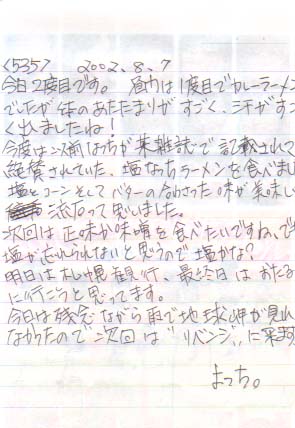 <535> 2002.8.7
今日2度目です。 昼は1度目でカレーラーメン
でしたが体のあたたまりがすごく、汗がすご
く出ましたね!
今度は以前 が某雑誌で記載されて
絶賛されていた、塩 ラーメンを食べま
塩とコーンそしてバターの合わさった味が美味し
流石って思いました。
次回は正味か味噌を食べたいですね、で
塩が忘れられないと思うので塩かな?
明日は札幌観行、最終日はおたる
に行こうと思ってます。
今日は残念ながら雨で地球岬が見れ
なかったので次回は"リベンジ"に来ます
まっち。